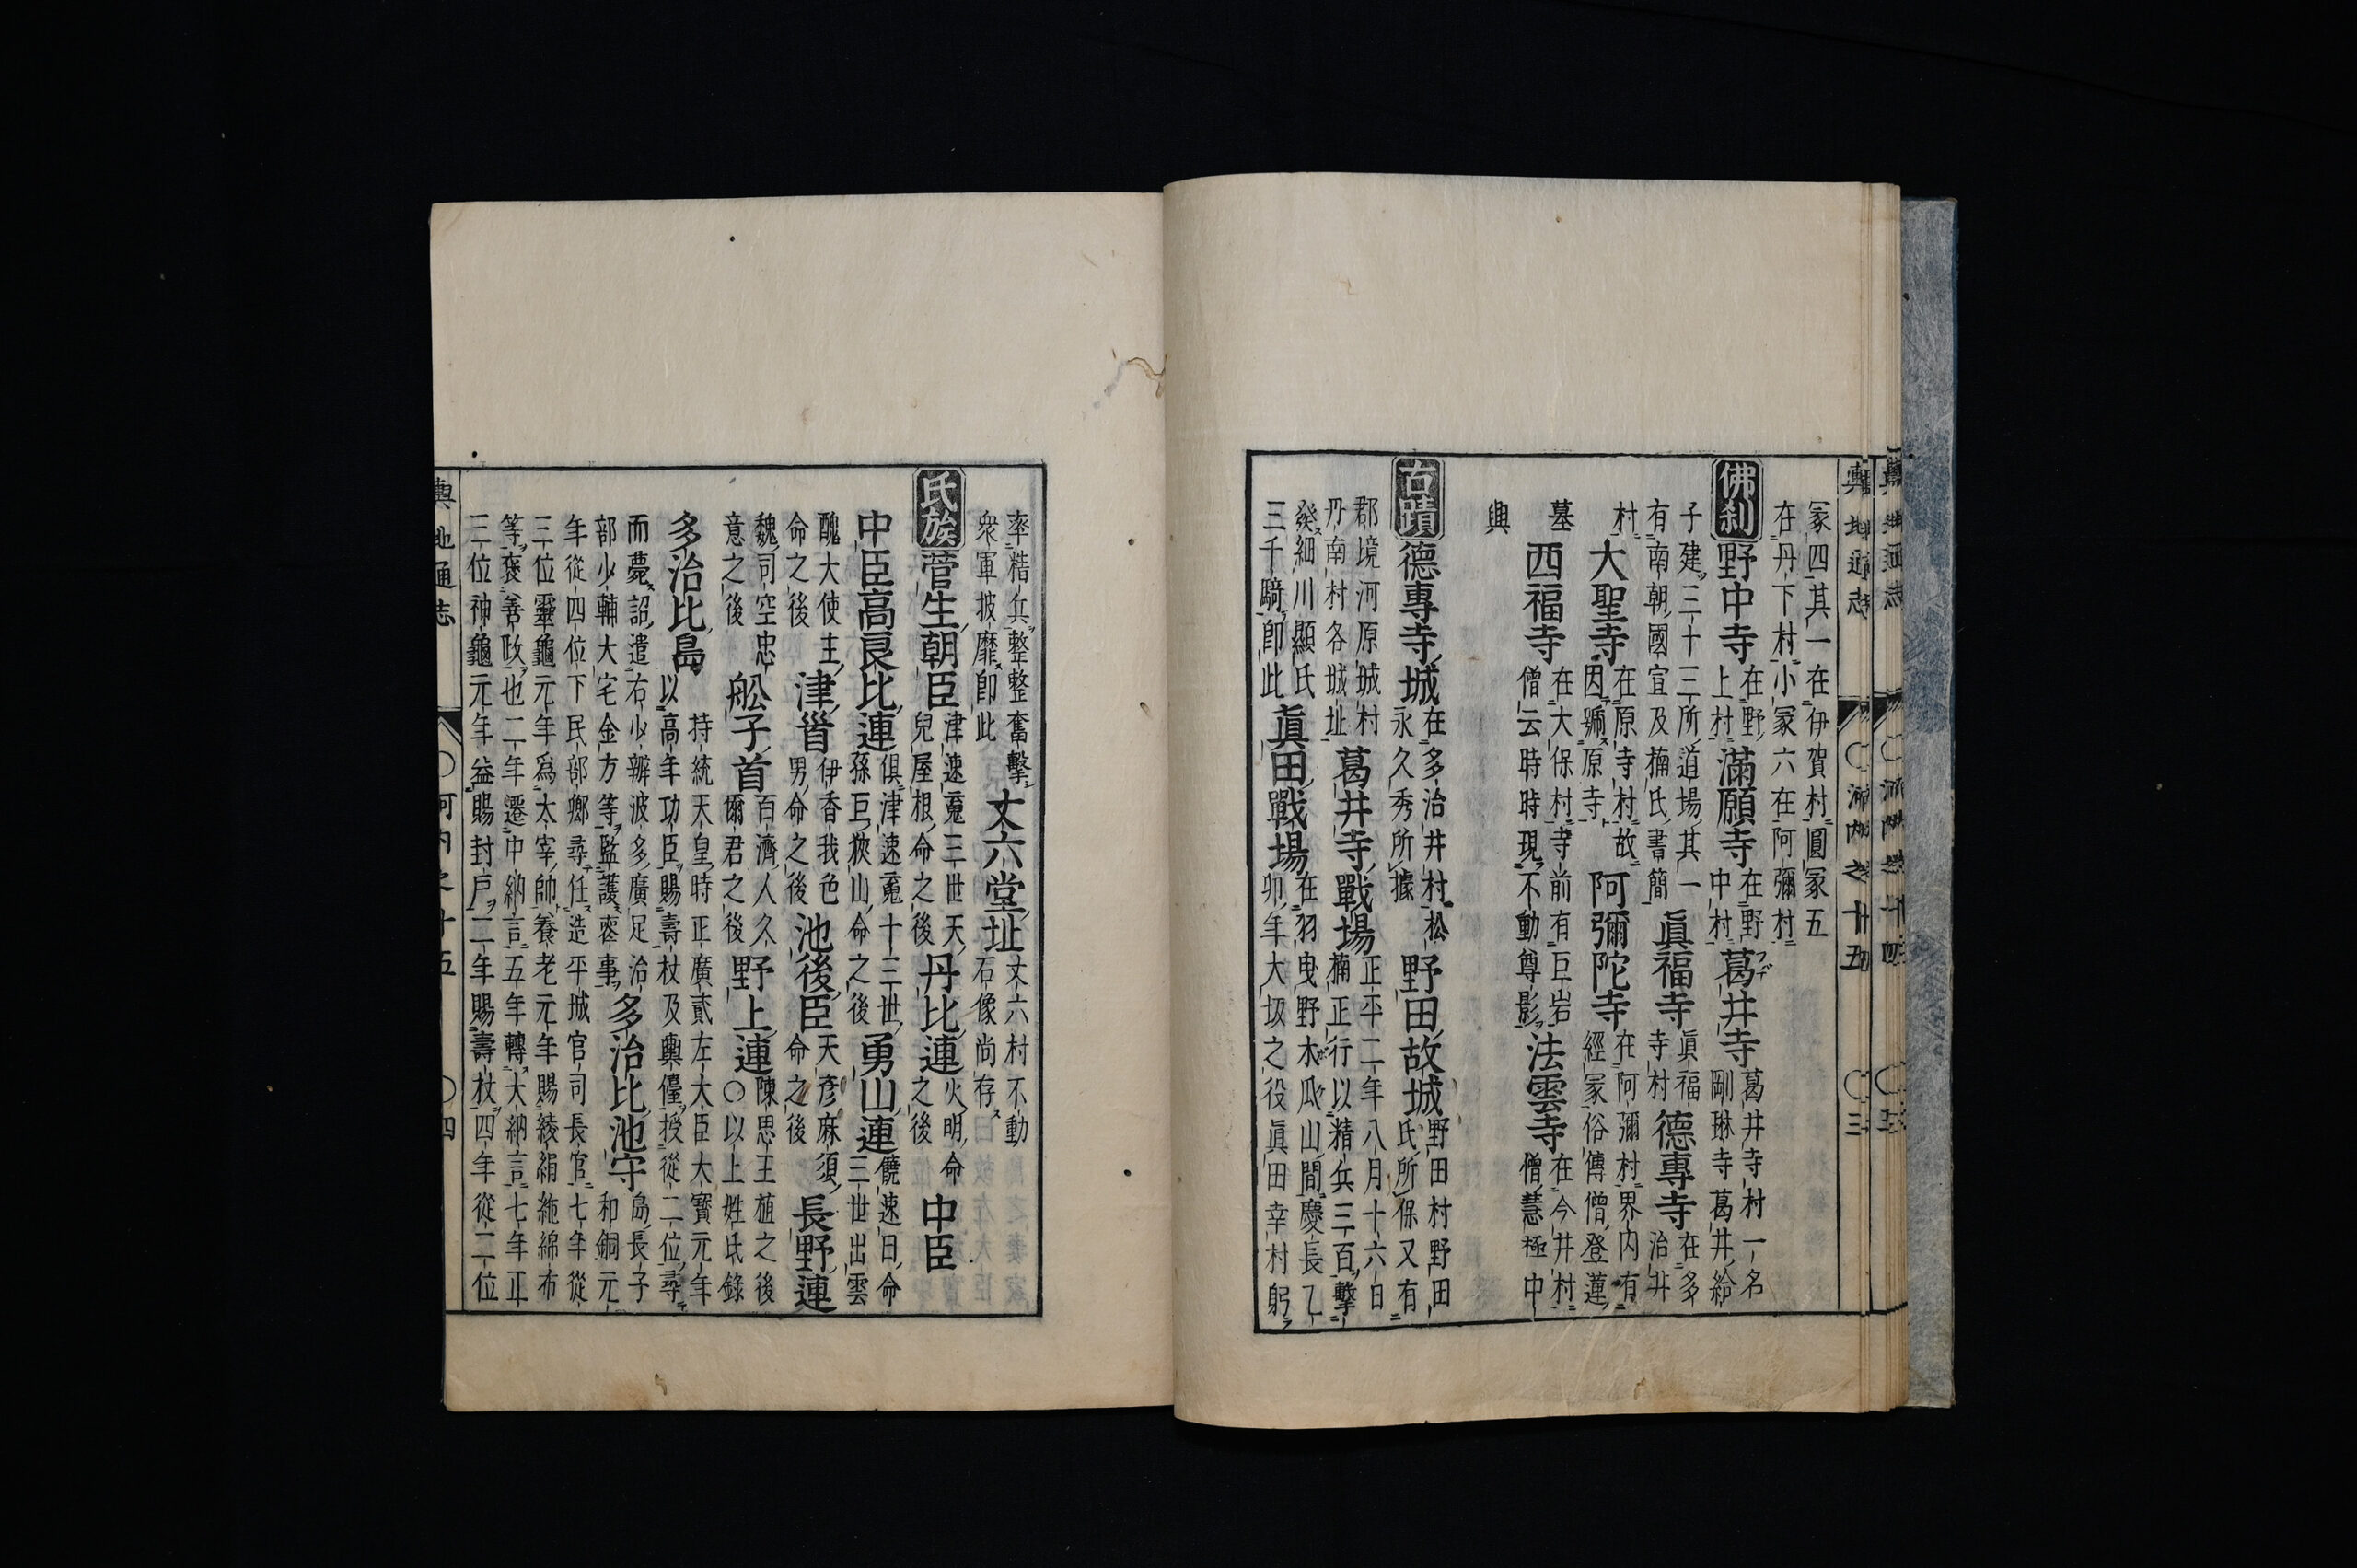 輿地通志 〇河內之十五 〇三
冢四其一在伊賀村圓冢五
在丹下村小冢六在阿彌村
佛刹 野中寺 在野上村 滿願寺 在野中村 葛井寺 葛井寺村一名剛琳寺葛井給
子建三十三所道場其一有南朝國宣及楠氏書簡 眞福寺 眞福寺村 德專寺 在多治井
村 大聖寺 在原寺村故因號原寺 阿彌陀寺 在阿彌村界内有經冢俗傳僧登蓮
墓 西福寺 在大保村寺前有巨岩僧云時時現不動尊影 法雲寺 在今井村僧慧極中
興
古蹟 德專寺城 在多治井村松永久秀所據 野田故城 野田村野田氏所保又有
郡境河原城村丹南村各城址 葛井寺戰場 正平二年八月十六日楠正行以精兵三百擊
細川顯氏三千騎卽此 眞田戰場 在羽曳野木瓜山間慶長乙卯年大坂之役眞田幸村躬
率精兵整整奮擊衆軍披靡卽此 丈六堂址 丈六村不動石像尚存
氏族 菅生朝臣 津速䰠三世天兒屋根命之後 丹比連 火明命之後 中臣
中臣高良比連 俱津速䰠十三世孫巨狹山命之後 勇山連 饒速日命三世出雲
醜大使主命之後 津首 伊香我色男命之後 池後臣 天彥麻須命之後 長野連
魏司空忠意之後 舩子首 百濟人久爾君之後 野上連 陳思王植之後〇以上姓氏錄
多治比島 持統天皇時正廣貳左大臣大寶元年以高年功臣賜壽杖及輿儓授從二位尋
而薨詔遣右少辨波多廣足治部少輔大宅金方等監護喪事 多治比池守 島長子和銅元
年從四位下民部鄉尋任造平城官司長官七年從
三位靈龜元年爲太宰帥養老元年賜綾絹絁綿布
等褒善政也二年遷中納言五年轉大納言七年正
三位神龜元年益賜封戶二年賜壽杖四年從二位
輿地通志 〇河內之十五 〇四